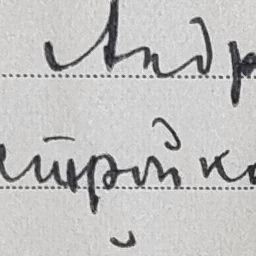 Андр
тройка